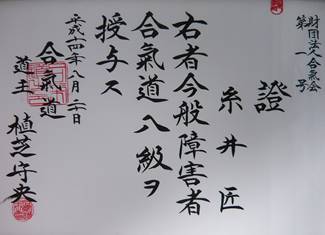 財団法人合氣会
第一号
證
糸井匠
右者今般障害者
合氣道八級ヲ
授与ス
平成十四年八月二十日
合氣道
道主 植芝守央